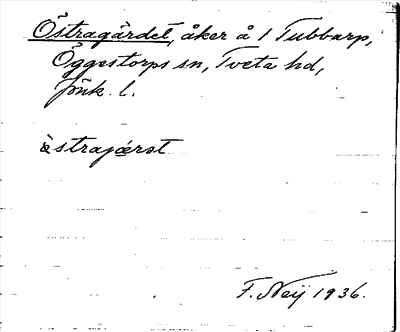 Östragärdet, åker å 1 Tubbarp,
Öggestorps sn, Tveta hd,
Jönk. l.
F. Neij 1936.